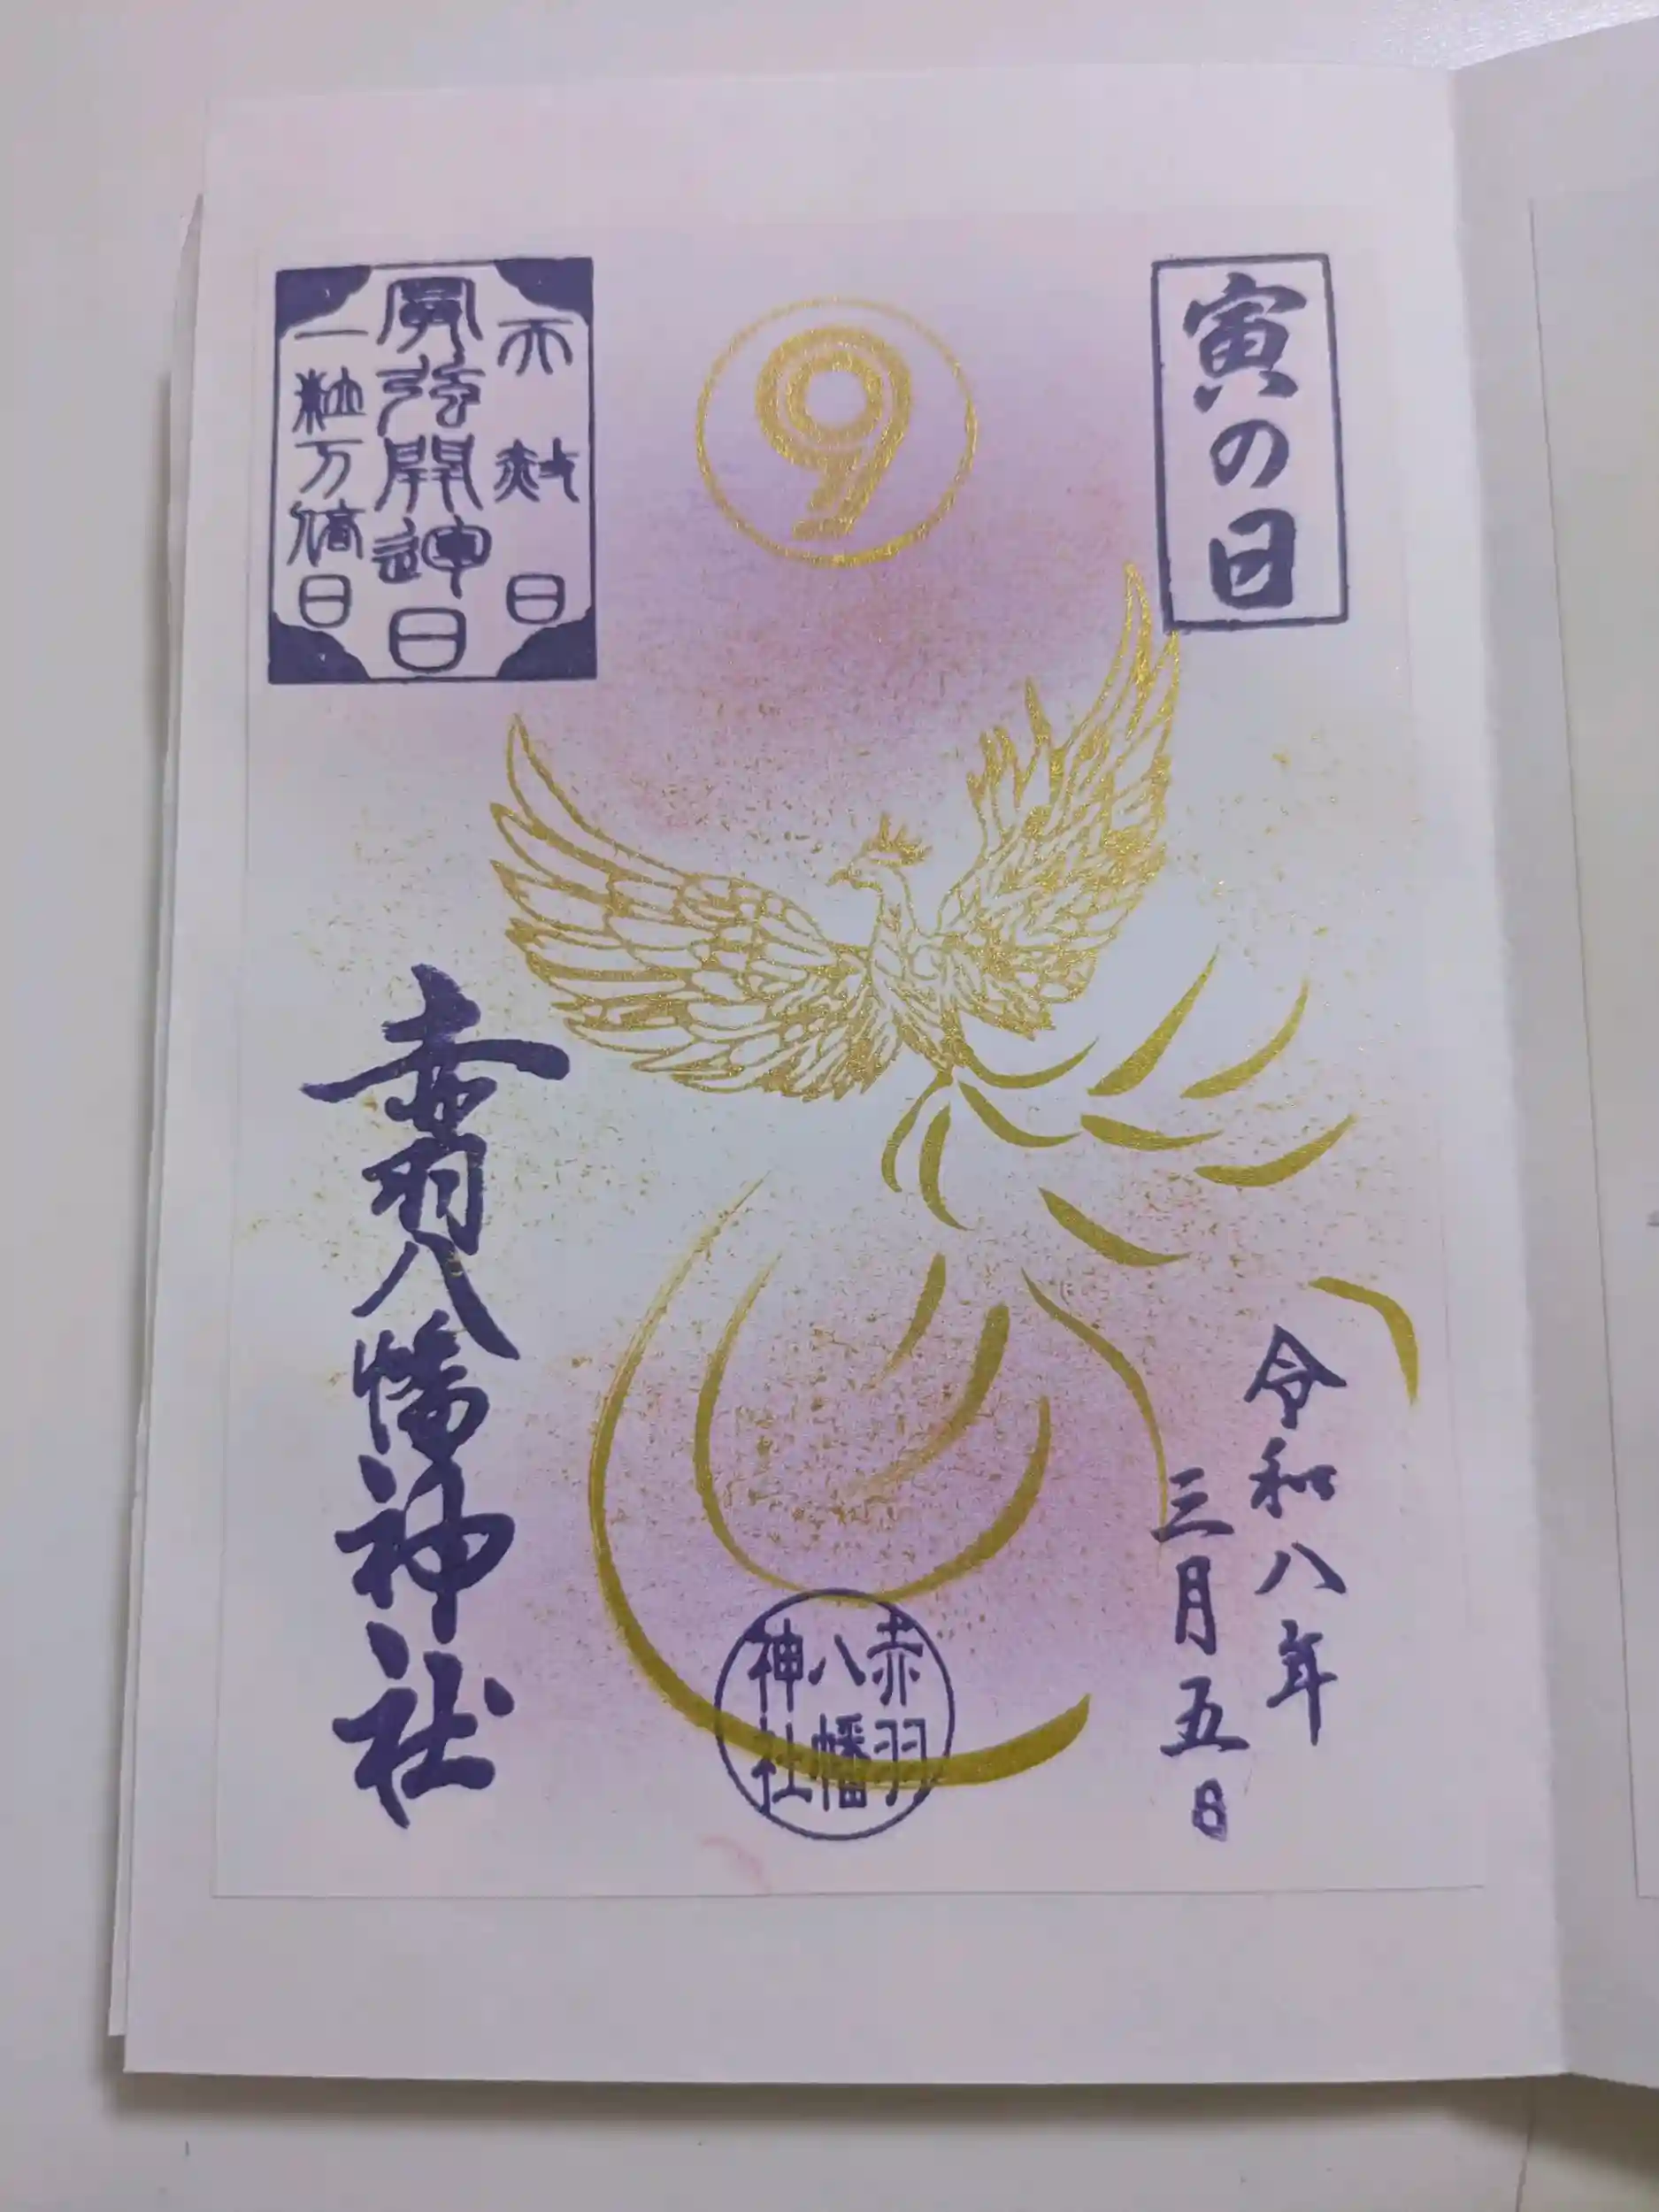 寅の日
9
天赦日
最強開運日
一粒万倍日
令和八年
三月五日
赤羽
八幡
神社
赤羽八幡神社